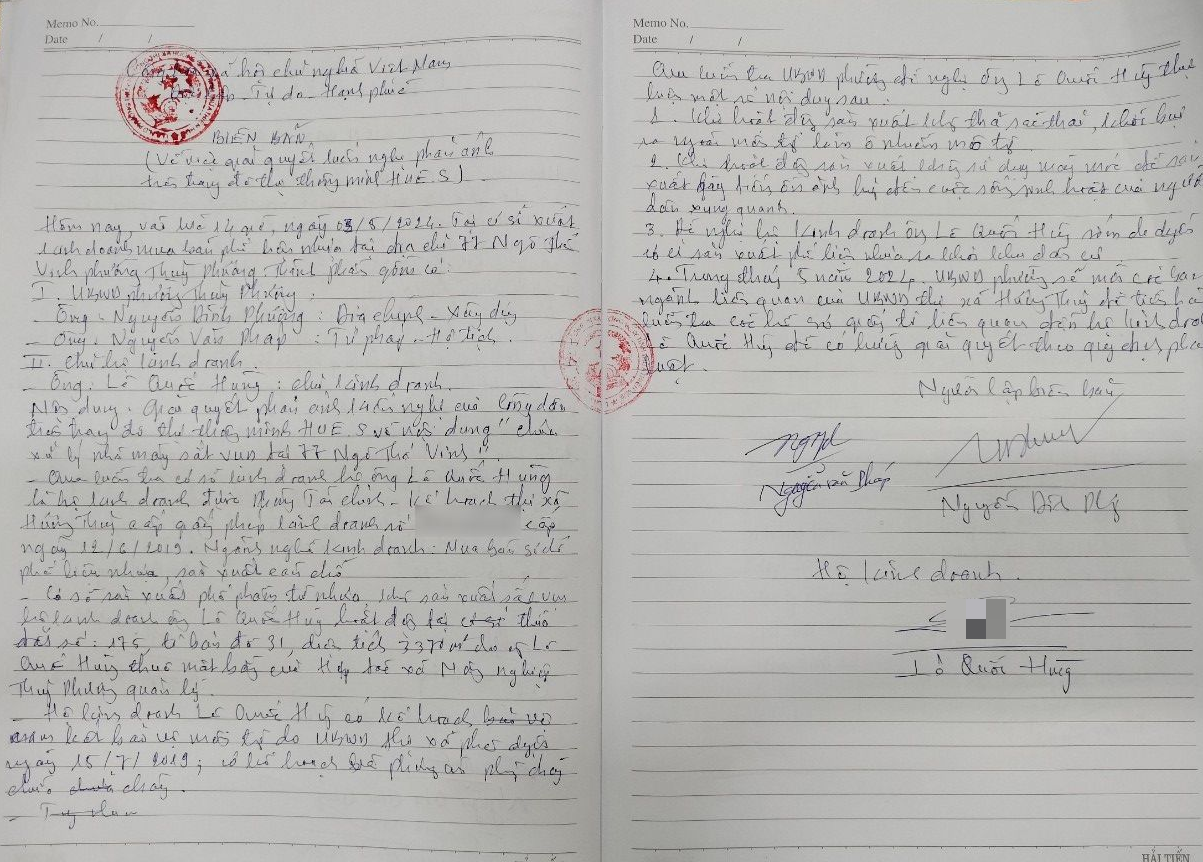 Memo No.
Date / /
Cộng hòa xã hội chủ nghĩa Việt Nam
Độc lập - Tự do - Hạnh phúc
BIÊN BẢN
(Về việc giải quyết kiến nghị phản ánh
trên trang đô thị thông minh HUE.S)
Hôm nay, vào lúc 14 giờ, ngày 03/5/2024. Tại cơ sở sản xuất
kinh doanh mua bán phế liệu nhựa tại địa chỉ 77 Ngô Thế
Vinh phường Thuỷ Phương Thành phần gồm có:
I. UBND phường Thuỷ Phương:
- Ông - Nguyễn Đình Phượng: Địa chính - xây dựng
- Ông - Nguyễn Văn Pháp: Tư pháp - Hộ tịch
II. Chủ hộ kinh doanh.
- Ông: Lê Quốc Hùng: chủ kinh doanh.
Nội dung. Giải quyết phản ánh kiến nghị của công dân
trên trang đô thị thông minh HUE.S về nội dung "chưa
xử lý nhà máy sắt vụn tại 77 Ngô Thế Vinh".
- Qua kiểm tra cơ sở kinh doanh hộ ông Lê Quốc Hùng
là hộ kinh doanh được phòng Tài chính - Kế hoạch thị xã
Hương Thuỷ cấp giấy phép kinh doanh số cấp
ngày 12/6/2019. Ngành nghề kinh doanh: Mua bán sỉ lẻ
phế liệu nhựa, sản xuất
- Cơ sở sản xuất phế phẩm từ nhựa, không sản xuất sắt vụn
hộ kinh doanh ông Lê Quốc Hùng hoạt động tại thửa
đất số: 175, tờ bản đồ 31, diện tích 3370 m² do ông Lê
Quốc Hùng thuê mặt bằng của Hợp tác xã Nông nghiệp
Thuỷ Phương quản lý.
- Hộ kinh doanh Lê Quốc Hùng có kế hoạch bảo vệ
cam kết bảo vệ môi trường do UBND thị xã phê duyệt
ngày 15/7/2019; có kế hoạch và phương án phòng cháy
chữa cháy.
Memo No.
Date / /
Qua kiểm tra UBND phường đề nghị ông Lê Quốc Hùng thực
hiện một số nội dung sau.
1. Khi hoạt động sản xuất không thả xả thải, khói bụi
ra ngoài môi trường làm ô nhiễm môi trường.
2. Khi hoạt động sản xuất không sử dụng máy móc để sản
xuất gây tiếng ồn ảnh hưởng đến cuộc sống sinh hoạt của người
dân xung quanh.
3. Đề nghị hộ kinh doanh ông Lê Quốc Hùng sớm di dời
cơ sở sản xuất phế liệu nhựa ra khỏi khu dân cư
4. Trong tháng 5 năm 2024. UBND phường sẽ mời các ban
ngành liên quan của UBND thị xã Hương Thuỷ để tiến hành
kiểm tra các hồ sơ giấy tờ liên quan đến hộ kinh doanh
Lê Quốc Hùng để có hướng giải quyết theo quy định pháp
luật.
Người lập biên bản
Nguyễn Văn Pháp
Nguyễn Đình Phượng
Hộ kinh doanh.
Lê Quốc Hùng
HẢI TIẾN